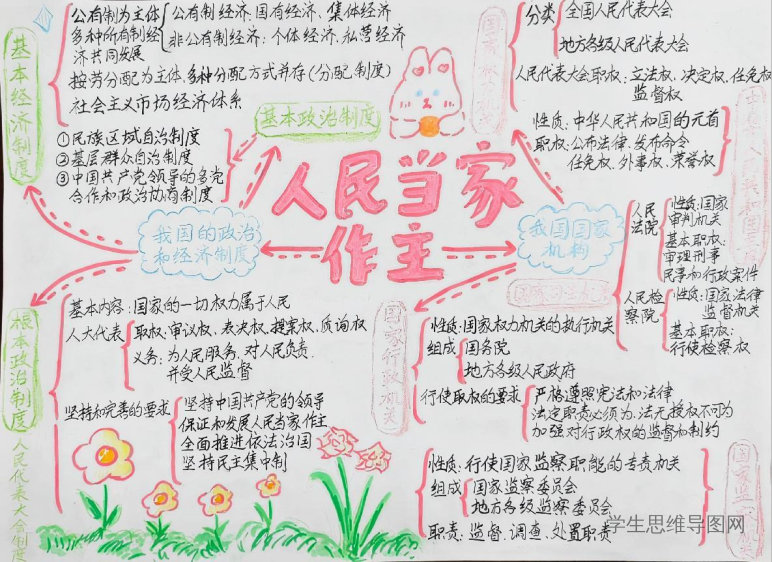 人民当家
作主
我国的政治
和经济制度
基本经济制度
公有制为主体
多种所有制经
济共同发展
公有制经济:国有经济、集体经济
非公有制经济:个体经济、私营经济
按劳分配为主体,多种分配方式并存(分配制度)
社会主义市场经济体系
基本政治制度
①民族区域自治制度
②基层群众自治制度
③中国共产党领导的多党
合作和政治协商制度
根本政治制度
人民代表大会制度
基本内容:国家的一切权力属于人民
人大代表
取权:审议权、表决权、提案权、质询权
义务:为人民服务、对人民负责、
并受人民监督
坚持和完善的要求
坚持中国共产党的领导
保证和发展人民当家作主
全面推进依法治国
坚持民主集中制
我国国家
机构
国家权力机关
分类
全国人民代表大会
地方各级人民代表大会
人民代表大会职权:立法权、决定权、任免权
监督权
性质:中华人民共和国的元首
职权:公布法律、发布命令
任免权、外事权、荣誉权
人民
法院
性质:国家
审判机关
基本职权:
审理刑事
民事和行政案件
人民检
察院
性质:国家法律
监督机关
基本职权:
行使检察权
国家行政机关
性质:国家权力机关的执行机关
组成
国务院
地方各级人民政府
行使取权的要求
严格遵照宪法和法律
法定职责必须为、法无授权不可为
加强对行政权的监督和制约
性质:行使国家监察职能的专责机关
组成
国家监察委员会
地方各级监察委员会
职责:监督、调查、处置职责
学生思维导图网